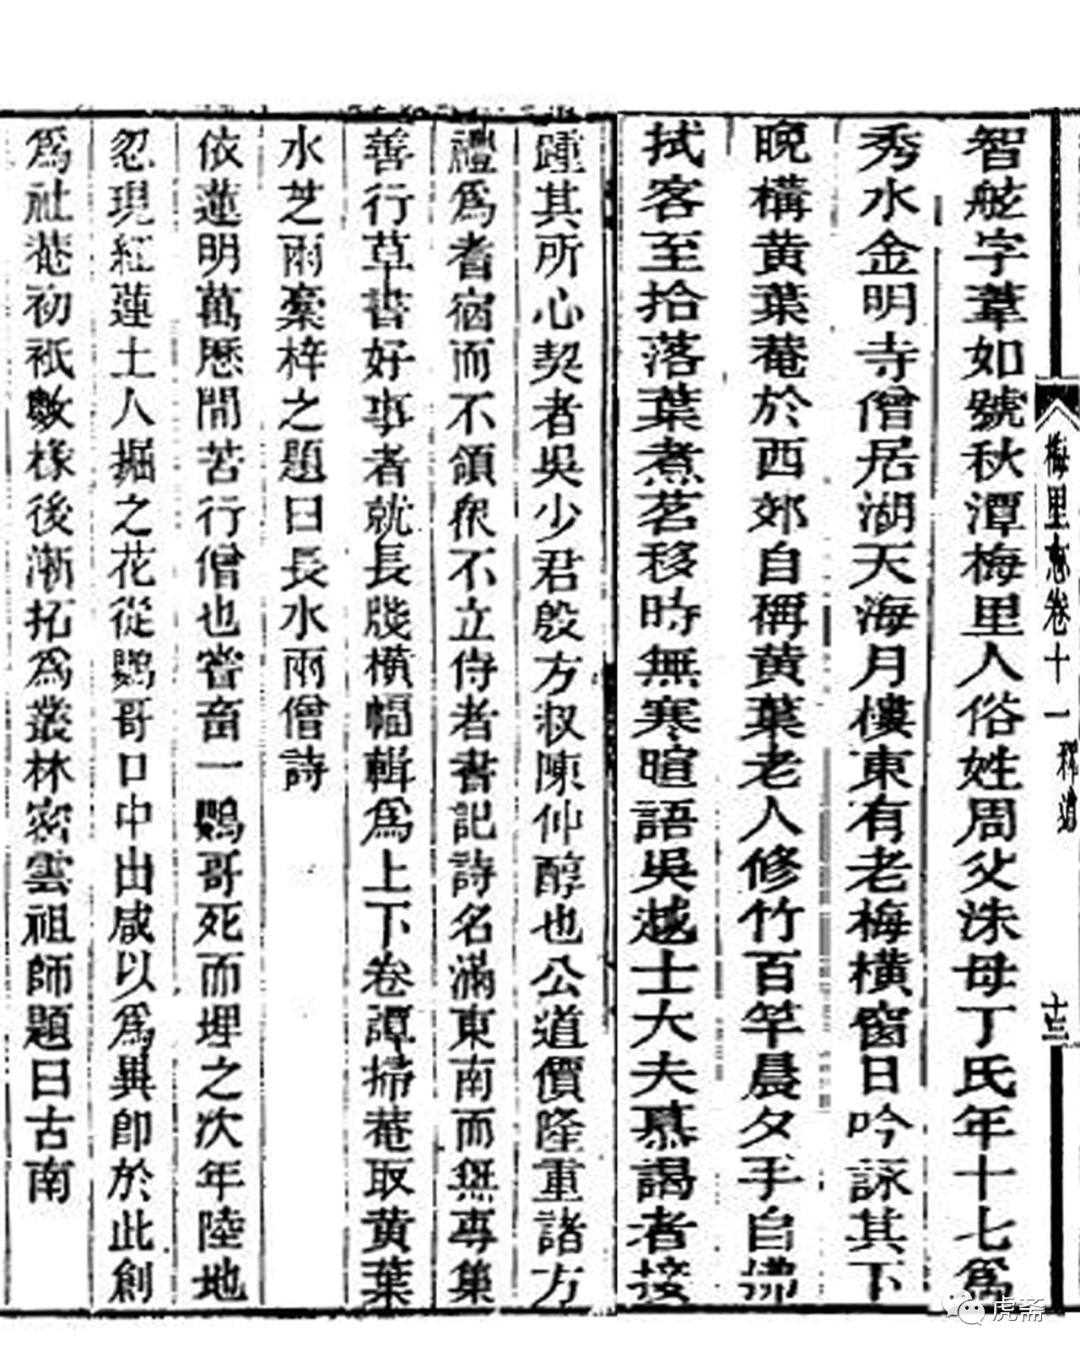 梅里志卷十一 釋道 十三
智舷字葦如號秋潭梅里人俗姓周父洙母丁氏年十七爲
秀水金明寺僧居湖天海月樓東有老梅橫窗日吟詠其下
晚構黃葉菴於西郊自稱黃葉老人修竹百竿晨夕手自拂
拭客至拾落葉煮茗移時無寒暄語吳越士大夫慕謁者接
踵其所心契者吳少君殷方叔陳仲醇也公道價隆重諸方
禮爲耆宿而不領衆不立侍者書記詩名滿東南而無專集
善行草書好事者就長牋橫幅輯爲上下卷譚掃菴取黃葉
水芝兩稾梓之題曰長水兩僧詩
依蓮明萬厯間苦行僧也嘗畜一鸚哥死而埋之次年陸地
忽現紅蓮土人掘之花從鸚哥口中出咸以爲異卽於此創
爲社菴初祇數椽後漸拓爲叢林密雲祖師題曰古南
虎斋